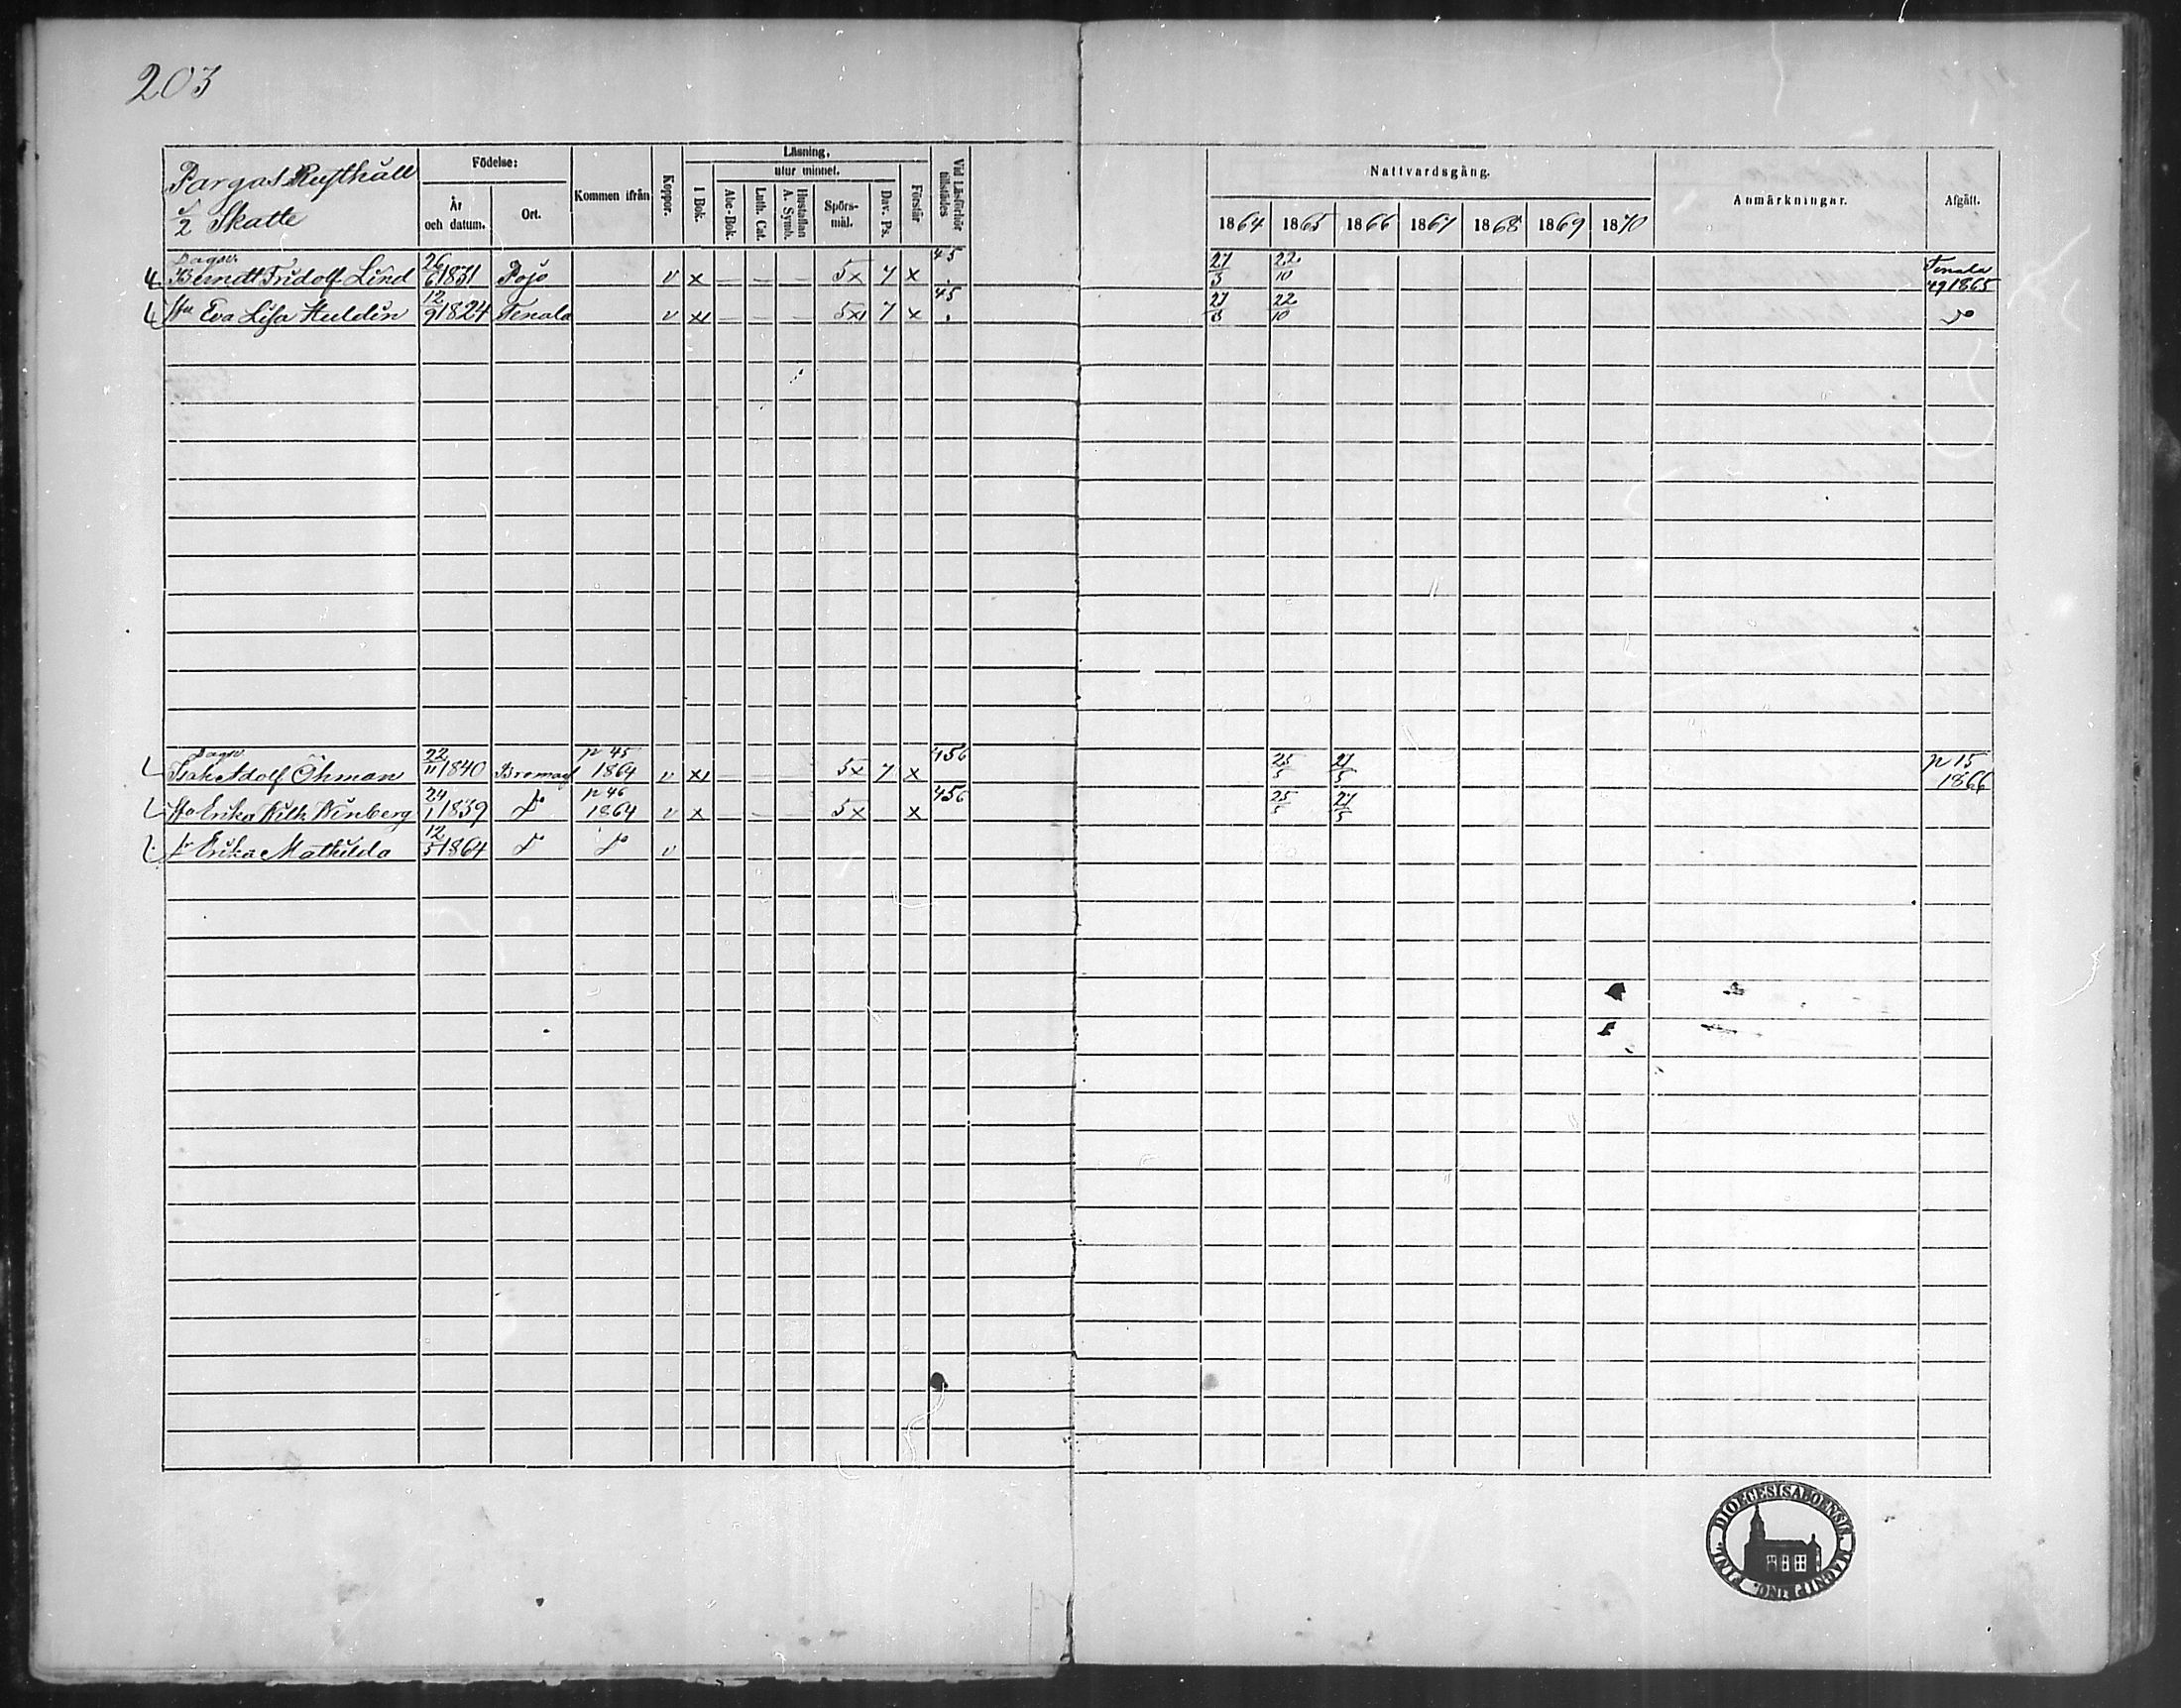 203
Pargas Rusthåll
1/2 Skatte
Födelse:
År och datum.
Ort.
Kommen ifrån
Koppor.
Läsning,
I Bok.
utur minnet.
Abc-Bok.
Luth. Cat.
Hustaflan A. Symb.
Spörsmål.
Dav. Ps.
Förstår
Vid Läsförhör tillstädes
Nattvardsgång.
1864 1865 1866 1867 1868 1869 1870
Anmärkningar.
Afgått.
Dagsv.
Berndt Fridolf Lind 26/6 1831 Pojo v x — — — 5x 7 x 45 27/3 22/10 Tenala 49 1865
Hu Eva Lisa Huldin 12/9 1824 Tenala v xı — — — 5xı 7 x 45 27/3 22/10 Do
Dagsv
Isak Adolf Öhman 22/11 1840 Bromarf p 45 1864 v xı — — — 5x 7 x 456 25/5 27/5 p 15 1866
Hu Erika Wilh. Winberg 24/1 1839 Do p 46 1864 v x — — — 5x x 456 25/5 27/5
dr Erika Mathilda 12/5 1864 Do Do v
DIOECESIS ABOENSIS. MAGNI PRINC. FINL.